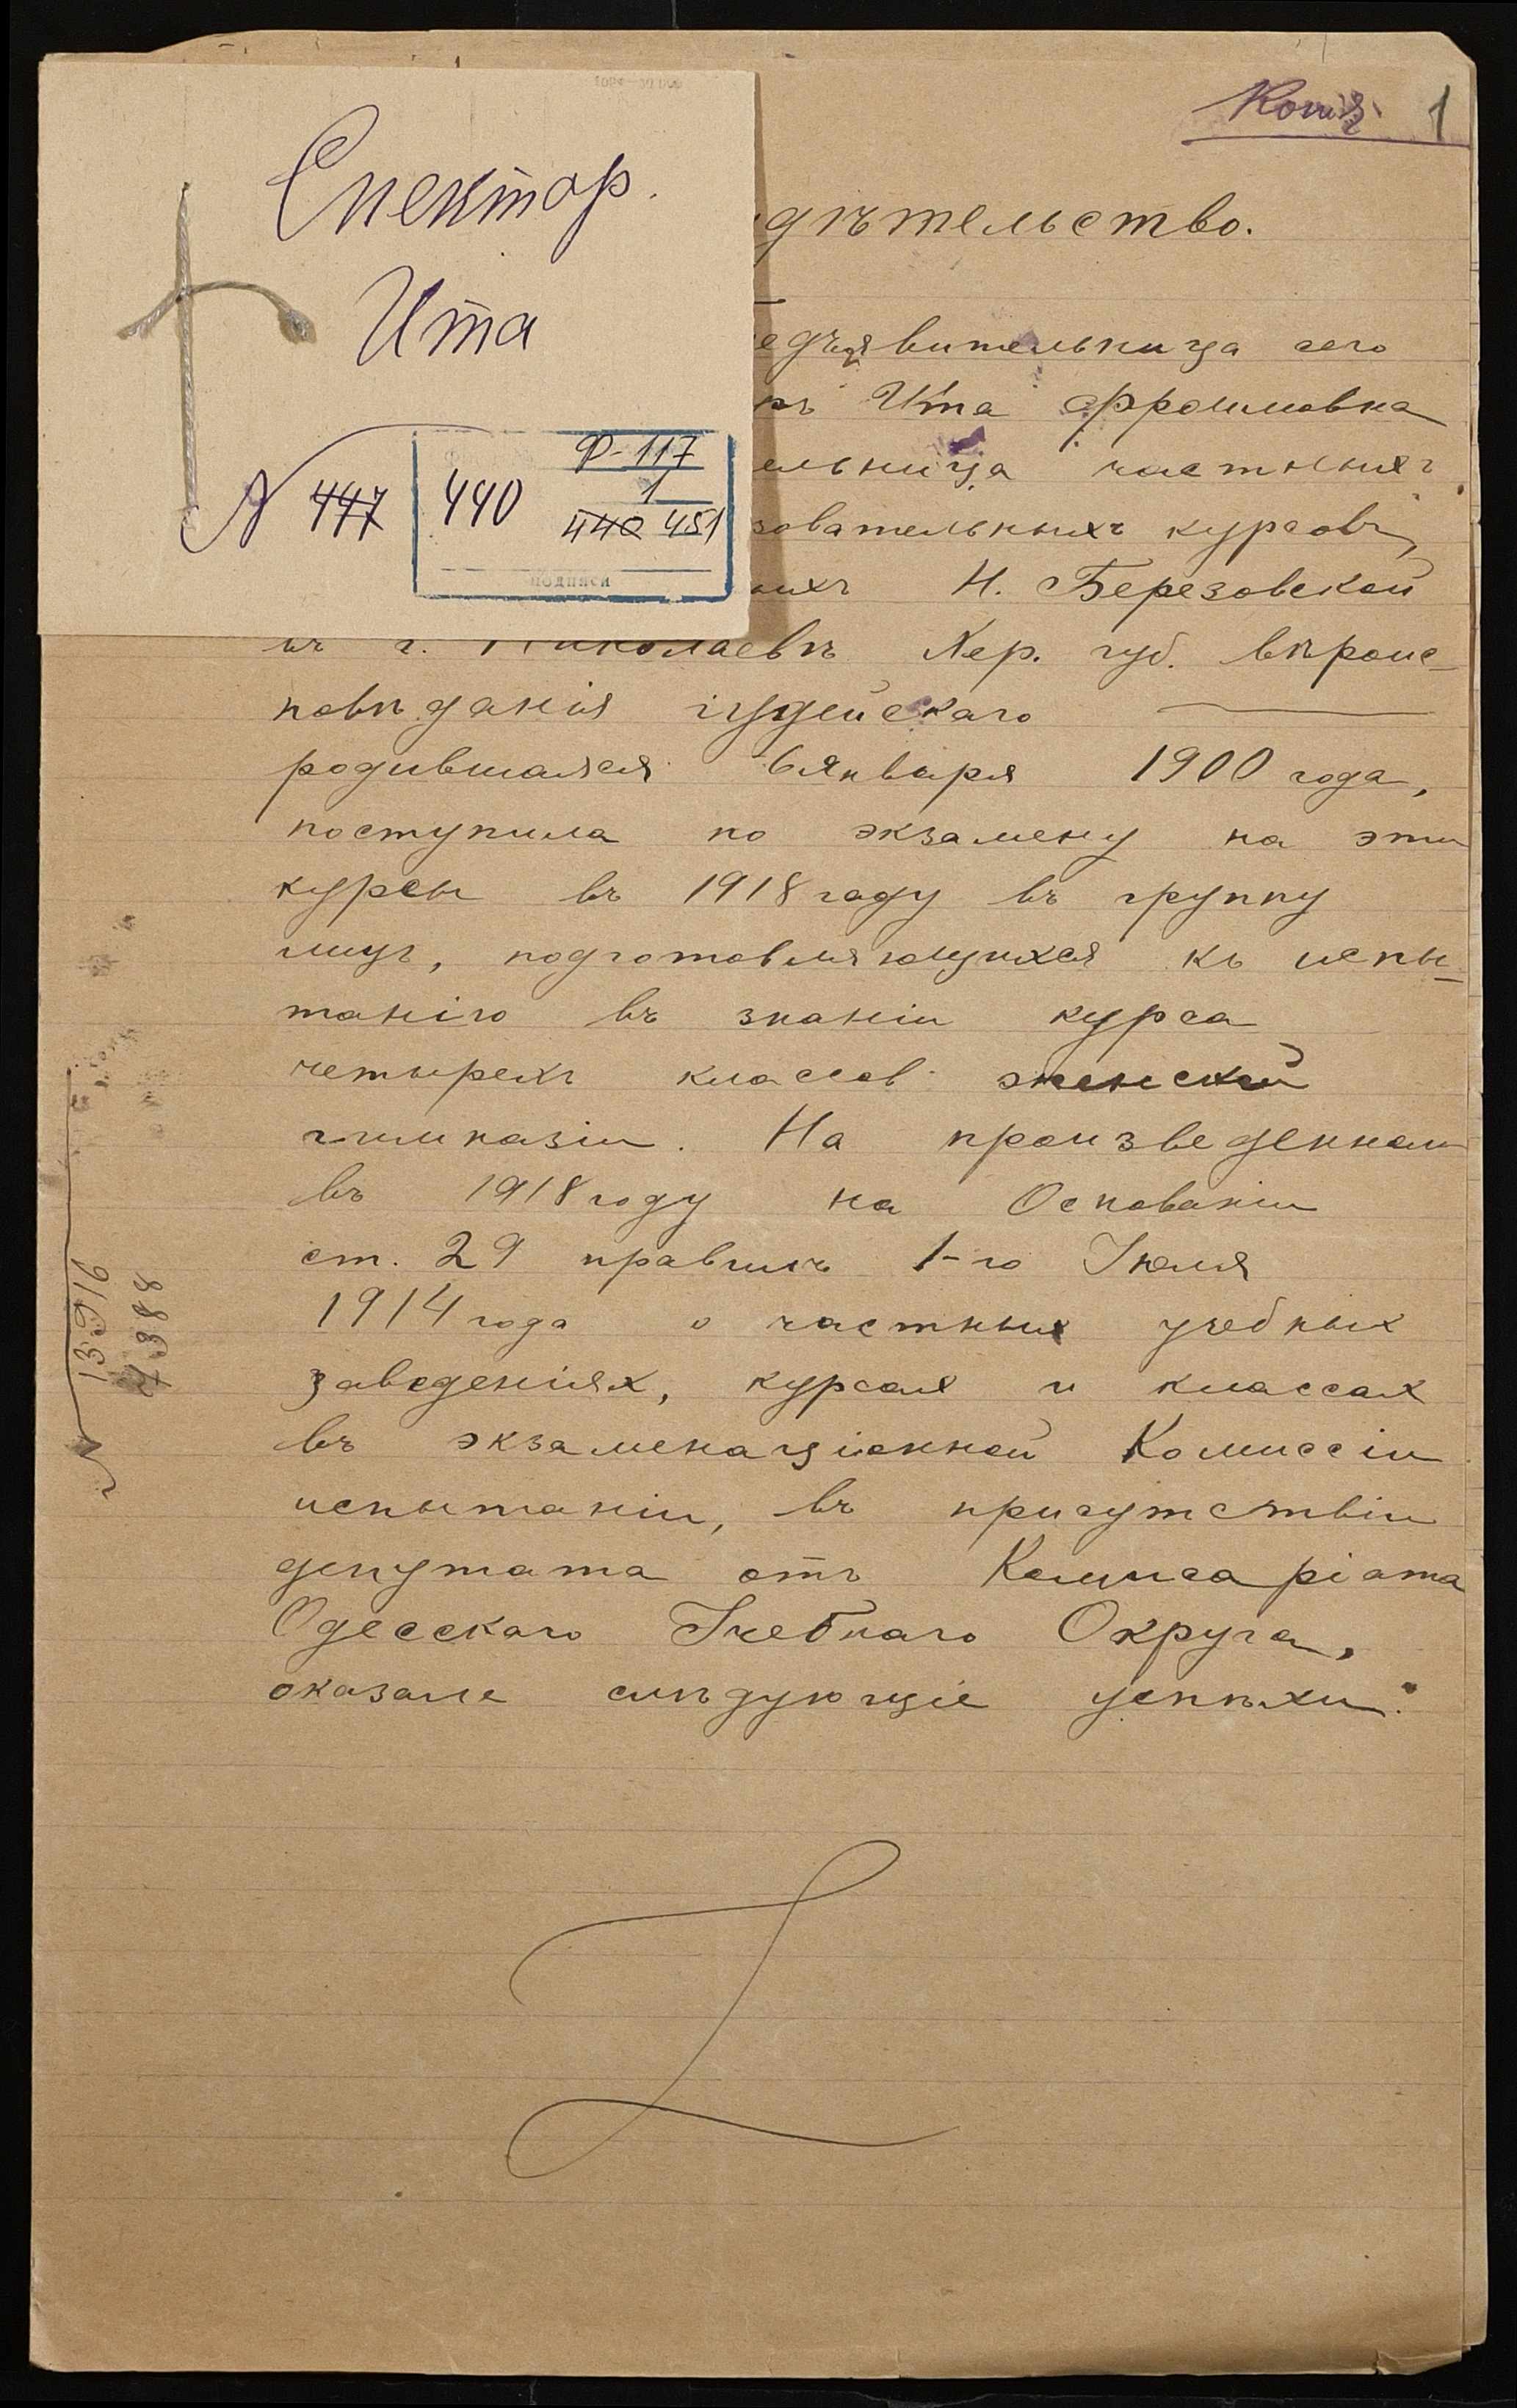 Копія 1
Спектор.
Ита
N 447 440 Ф-117
1
440 451
подписи
дѣтельство.
едъявительница сего
ръ Ита Фроимовна
ельница частныхъ
зовательныхъ курсовъ,
ныхъ Н. Березовской
въ г. Николаевѣ Хер. губ. вѣроис-
повѣданія іудейскаго
родившаяся 6 января 1900 года,
поступила по экзамену на эти
курсы въ 1918 году въ группу
лицъ, подготовляющихся къ испы-
танію въ знаніи курса
четырехъ классов женской
гимназіи. На произведенном
въ 1918 году на Основаніи
ст. 29 правилъ 1-го Іюля
1914 года о частных учебных
заведеніях, курсах и классах
въ экзаменаціонной Комиссіи
испытаніи, въ присутствіи
депутата отъ Комисаріата
Одесскаго Учебнаго Округа,
оказала слѣдующіе успѣхи:
N 13916
7388